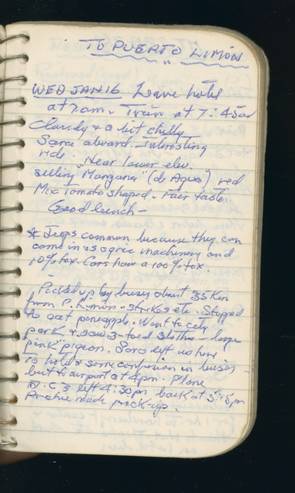 TO PUERTO LIMÓN
WED JAN 16 Leave hotel
at 7am. Train at 7:45am
Cloudy & a bit chilly
Sara aboard. Interesting
ride. Near lower elev.
selling Manzana (de Agua) red
Mex Tomato shaped. Fair taste.
Good lunch -
* Jeeps common because they can
come in as agric machinery and
10% tax. Cars have a 100% tax.
Picked up by buses about 35 Km
from P. Limon - strikes etc. Stopped
to eat pineapple. Went to city
park & saw 3-toed sloths - large
pink pigeon. Sara left us here
to hotel & some confusion in buses -
but to airport at 4pm. Plane
D.C 3 left 4:30pm back at 5:15pm
made pick-up.